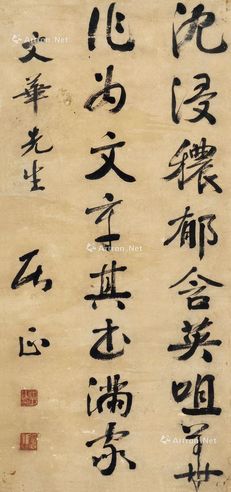 沈浸穠郁含英咀華
作为文章其书滿家
文華先生
居正
Artron.Net
Artron.Net
Artron.Net
Artron.Net